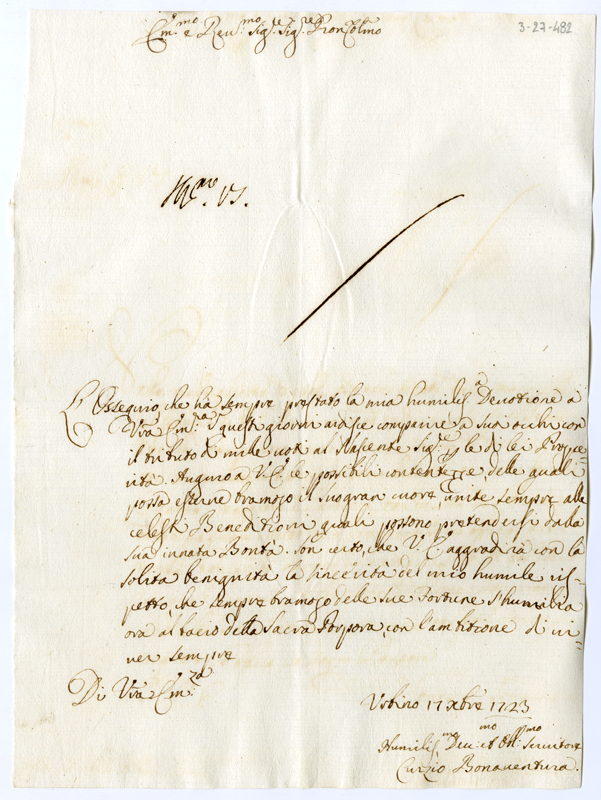 3-27-482
Em.mo e Reu.mo Sig.re Sig.re Pron Colmo
L'Ossequio, che hà sempre prestato la mia humiliss.a Deuotione à
Vrã Em.za in questi giorni ardisce comparire à suoi occhi con
il tributo di mille uoti al Nascente Sig.re p le di lei Prospe=
rità. Auguro a V. E.a le possibili contentezze, delle quali
possa esserne bramoso il suo gran cuore, unite sempre alle
celesti Beneditioni quali possono pretendersi dalla
sua innata Bontà. Son certo, che V. E.a aggradirà con la
solita benignità la sincerità del mio humile ris=
petto, che sempre bramoso delle sue Fortune s'humilia
ora al bacio della Sacra Porpora, con l'ambitione di ui=
uer sempre
Di Vrã Em.za
Vrbino 17 Xbre 1723
Humiliss.mo Deu: et Obl.mo Seruitore
Curzio Bonauentura.